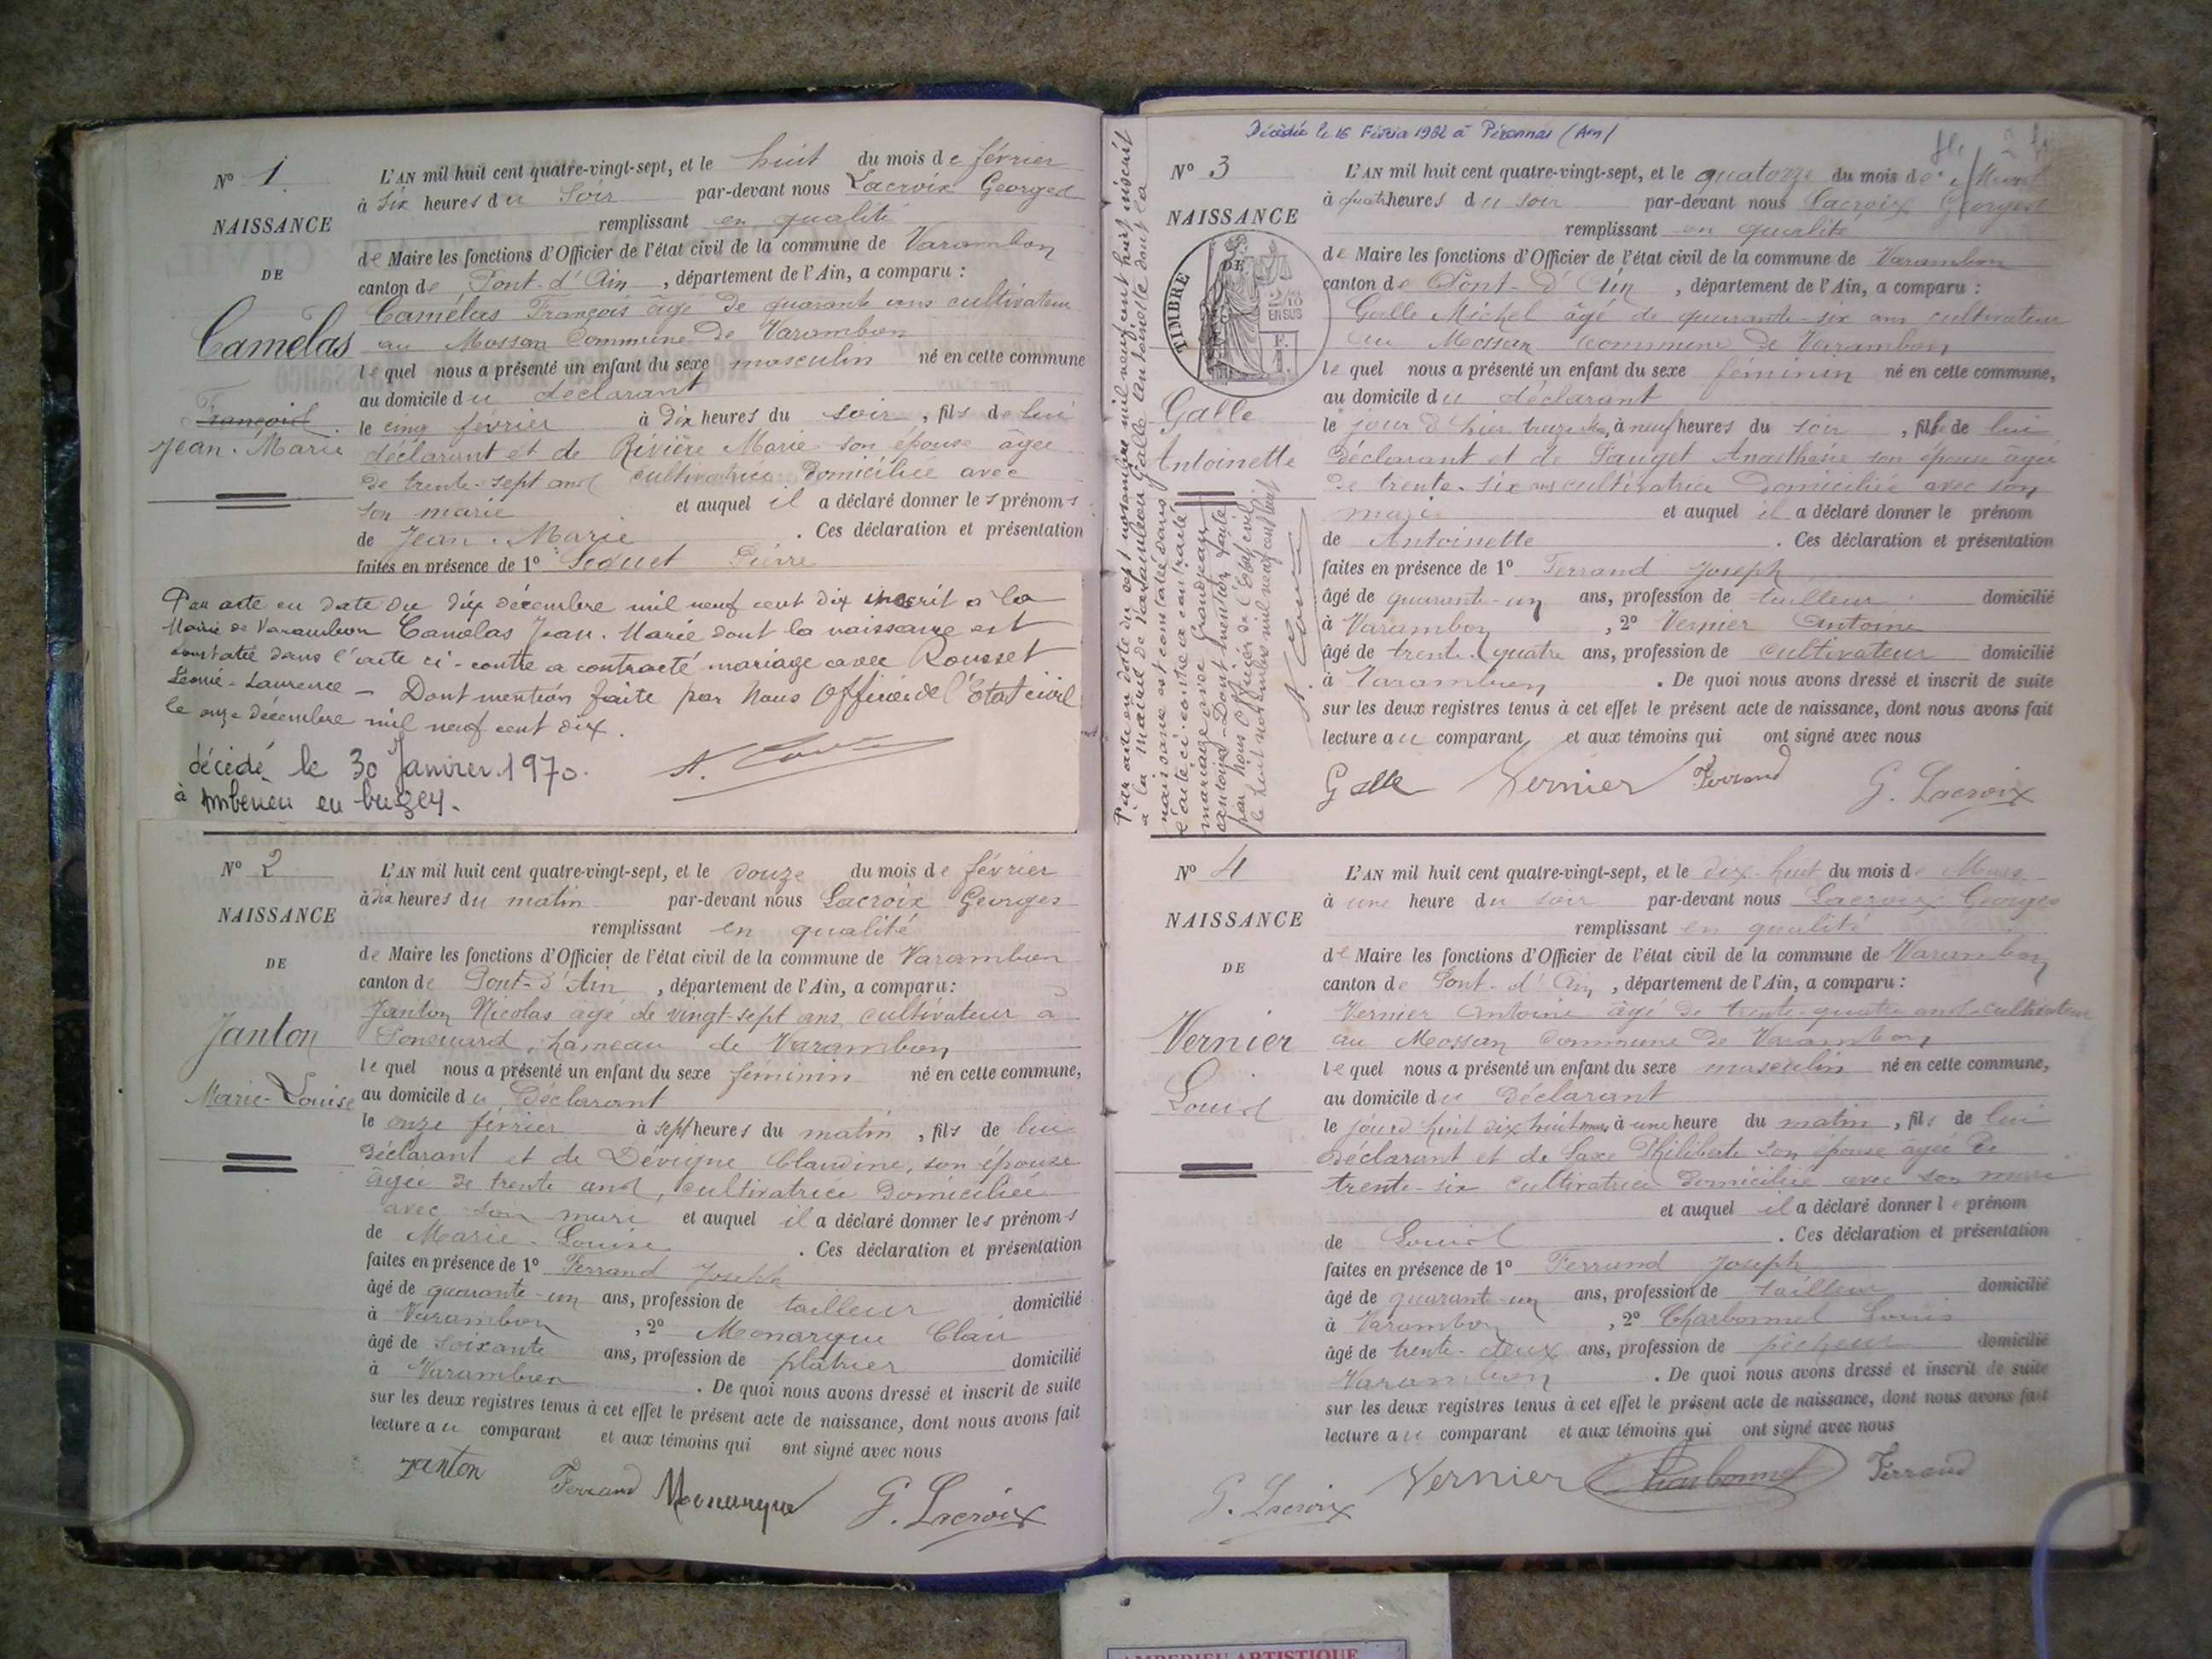 N° 1.
NAISSANCE
DE
Camelas
François
Jean-Marie
L'AN mil huit cent quatre-vingt-sept, et le huit du mois de février
à six heures du Soir par-devant nous Lacroix Georges
remplissant en qualité
de Maire les fonctions d'Officier de l'état civil de la commune de Varambon
canton de Pont-d'Ain, département de l'Ain, a comparu :
Camélas François âgé de quarante ans cultivateur
au Mossan Commune De Varambon
lequel nous a présenté un enfant du sexe masculin né en cette commune
au domicile du déclarant
le cinq février à Dix heures du soir, fils de lui
déclarant et de Rivière Marie son épouse âgée
de trente-sept ans cultivatrice domiciliée avec
son marie et auquel il a déclaré donner les prénoms
de Jean-Marie. Ces déclaration et présentation
faites en présence de 1° Pierre
Par acte en date du dix décembre mil neuf cent dix inscrit à la
Mairie de Varambon Camelas Jean-Marie dont la naissance est
constatée dans l'acte ci-contre a contracté mariage avec Rousset
Laurence — Dont mention faite par Nous Officier de l'Etat civil
le onze décembre mil neuf cent dix.
décédé le 30 Janvier 1970.
à en bugey.
N° 2
NAISSANCE
DE
Janton
Marie-Louise
L'AN mil huit cent quatre-vingt-sept, et le douze du mois de février
à dix heures du matin par-devant nous Lacroix Georges
remplissant en qualité
de Maire les fonctions d'Officier de l'état civil de la commune de Varambon
canton de Pont-d'Ain, département de l'Ain, a comparu :
Janton Nicolas âgé de vingt-sept ans, cultivateur à
hameau de Varambon
lequel nous a présenté un enfant du sexe féminin né en cette commune,
au domicile du Déclarant
le onze février à sept heures du matin, fils de lui
déclarant et de Devigne Claudine, son épouse
âgée de trente ans, cultivatrice domiciliée
avec son mari et auquel il a déclaré donner les prénoms
de Marie-Louise. Ces déclaration et présentation
faites en présence de 1° Ferrand Joseph
âgé de quarante-un ans, profession de tailleur domicilié
à Varambon, 2° Monarque Clair
âgé de soixante ans, profession de platrier domicilié
à Varambon. De quoi nous avons dressé et inscrit de suite
sur les deux registres tenus à cet effet le présent acte de naissance, dont nous avons fait
lecture au comparant et aux témoins qui ont signé avec nous
Janton Ferrand Monarque G. Lacroix
Par acte en date du sept novembre mil neuf cent huit inscrit
à la mairie de Galle Antoinette dont la
naissance est constatée dans
l'acte ci-contre a contracté
mariage avec Grandjean
Antoine - Dont mention faite
par Nous Officier de l'Etat civil
le huit novembre mil neuf cent huit
Décédée le 16 Février 1982 à Péronnas (Ain)
N° 3
NAISSANCE
DE
TIMBRE
2/10
EN SUS
F.
1.
Galle
Antoinette
L'AN mil huit cent quatre-vingt-sept, et le quatorze du mois de Mars
à quatre heures du soir par-devant nous Lacroix Georges
remplissant en qualité
de Maire les fonctions d'Officier de l'état civil de la commune de Varambon
canton de Pont-d'Ain, département de l'Ain, a comparu :
Galle Michel âgé de quarante-six ans cultivateur
au Mossan commune de Varambon
lequel nous a présenté un enfant du sexe féminin né en cette commune,
au domicile du déclarant
le jour d'hier treize, à neuf heures du soir, fille de lui
déclarant et de Anasthasie son épouse âgée
de trente-six ans cultivatrice domiciliée avec son
mari et auquel il a déclaré donner le prénom
de Antoinette. Ces déclaration et présentation
faites en présence de 1° Ferrand Joseph
âgé de quarante-un ans, profession de tailleur domicilié
à Varambon, 2° Vernier Antoine
âgé de trente-quatre ans, profession de cultivateur domicilié
à Varambon. De quoi nous avons dressé et inscrit de suite
sur les deux registres tenus à cet effet le présent acte de naissance, dont nous avons fait
lecture au comparant et aux témoins qui ont signé avec nous
Galle Vernier Ferrand G. Lacroix
N° 4
NAISSANCE
DE
Vernier
Louis
L'AN mil huit cent quatre-vingt-sept, et le dix-huit du mois de Mars
à une heure du soir par-devant nous Lacroix Georges
remplissant en qualité
de Maire les fonctions d'Officier de l'état civil de la commune de Varambon
canton de Pont-d'Ain, département de l'Ain, a comparu :
Vernier Antoine âgé de trente-quatre ans cultivateur
au Mossan Commune de Varambon
lequel nous a présenté un enfant du sexe masculin né en cette commune,
au domicile du déclarant
le jourd'huit dix huit mars à une heure du matin, fils de lui
déclarant et de Saxe Philiberte son épouse âgée de
trente-six cultivatrice domiciliée avec son mari
et auquel il a déclaré donner le prénom
de Louis. Ces déclaration et présentation
faites en présence de 1° Ferrand Joseph
âgé de quarante-un ans, profession de tailleur domicilié
à Varambon, 2° Charbonnel Louis
âgé de trente-deux ans, profession de pêcheur domicilié
Varambon. De quoi nous avons dressé et inscrit de suite
sur les deux registres tenus à cet effet le présent acte de naissance, dont nous avons fait
lecture au comparant et aux témoins qui ont signé avec nous
G. Lacroix Vernier Charbonnel Ferrand
AMBERIEU ARTISTIQUE